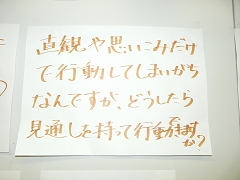 直観や思いこみだけ
で行動してしまいがち
なんですが、どうしたら
見通しを持って行動できますか?